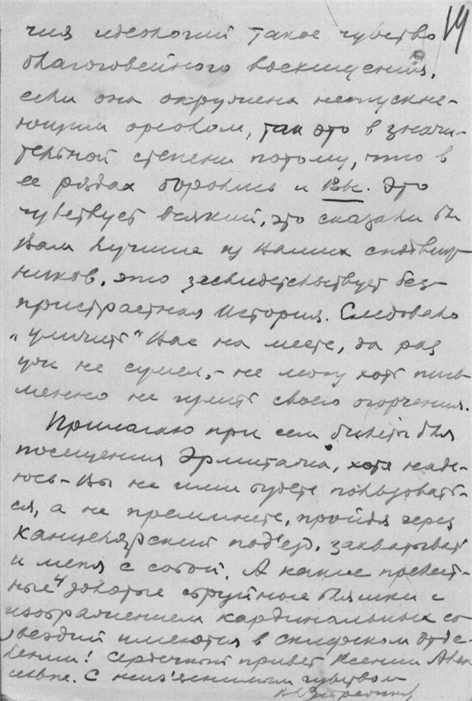 19
чия идеологий такое чувство
благоговейного восхищения,
если она окружена непускне-
ющим ореолом, так это в значи-
тельной степени потому, что в
ее рядах боролись и Вы. Это
чувствует всякий, это сказали бы
Вам лучшие из Ваших сподвиж-
ников, это засвидетельствует без-
пристрастная История. Следовало
"уличить" Вас на месте, да раз
уж не сумел, - не могу хоть пись-
менно не излить своего огорчения.
Прилагаю при сем билеты для
посещения Эрмитажа, хотя наде-
юсь - Вы не ими будете пользовать-
ся, а не преминете, пройдя через
канцелярский под'езд, захватывать
и меня с собой. А какие прелест-
ные золотые бляшки с
изображением кардинальных со
звездий имеются в скифском отде-
лении! Сердечный привет Ксении Алек
сеевне. С неиз'яснимым чувством